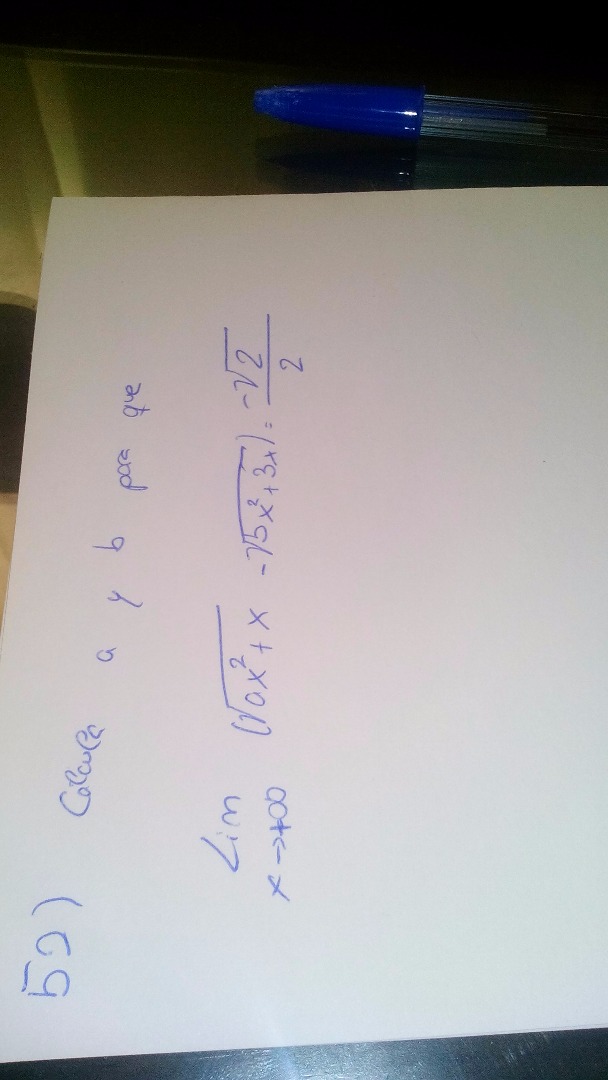 52) Calcula a y b para que
Lim (√ax²+x -√5x²+3x) = -√2/2
x→+∞